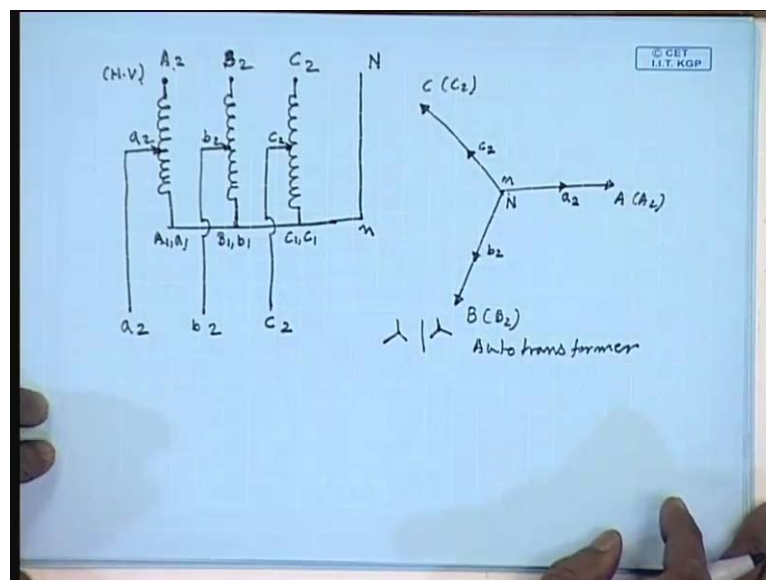 © CET
I.I.T. KGP
A2 B2 C2 N
(H.V)
a2 b2 c2
A1,a1 B1,b1 C1,C1 n
a2 b2 C2
C (C2)
c2
n
N
a2
A (A2)
b2
B (B2)
Auto transformer